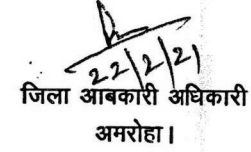 22/2/21
जिला आबकारी अधिकारी
अमरोहा।